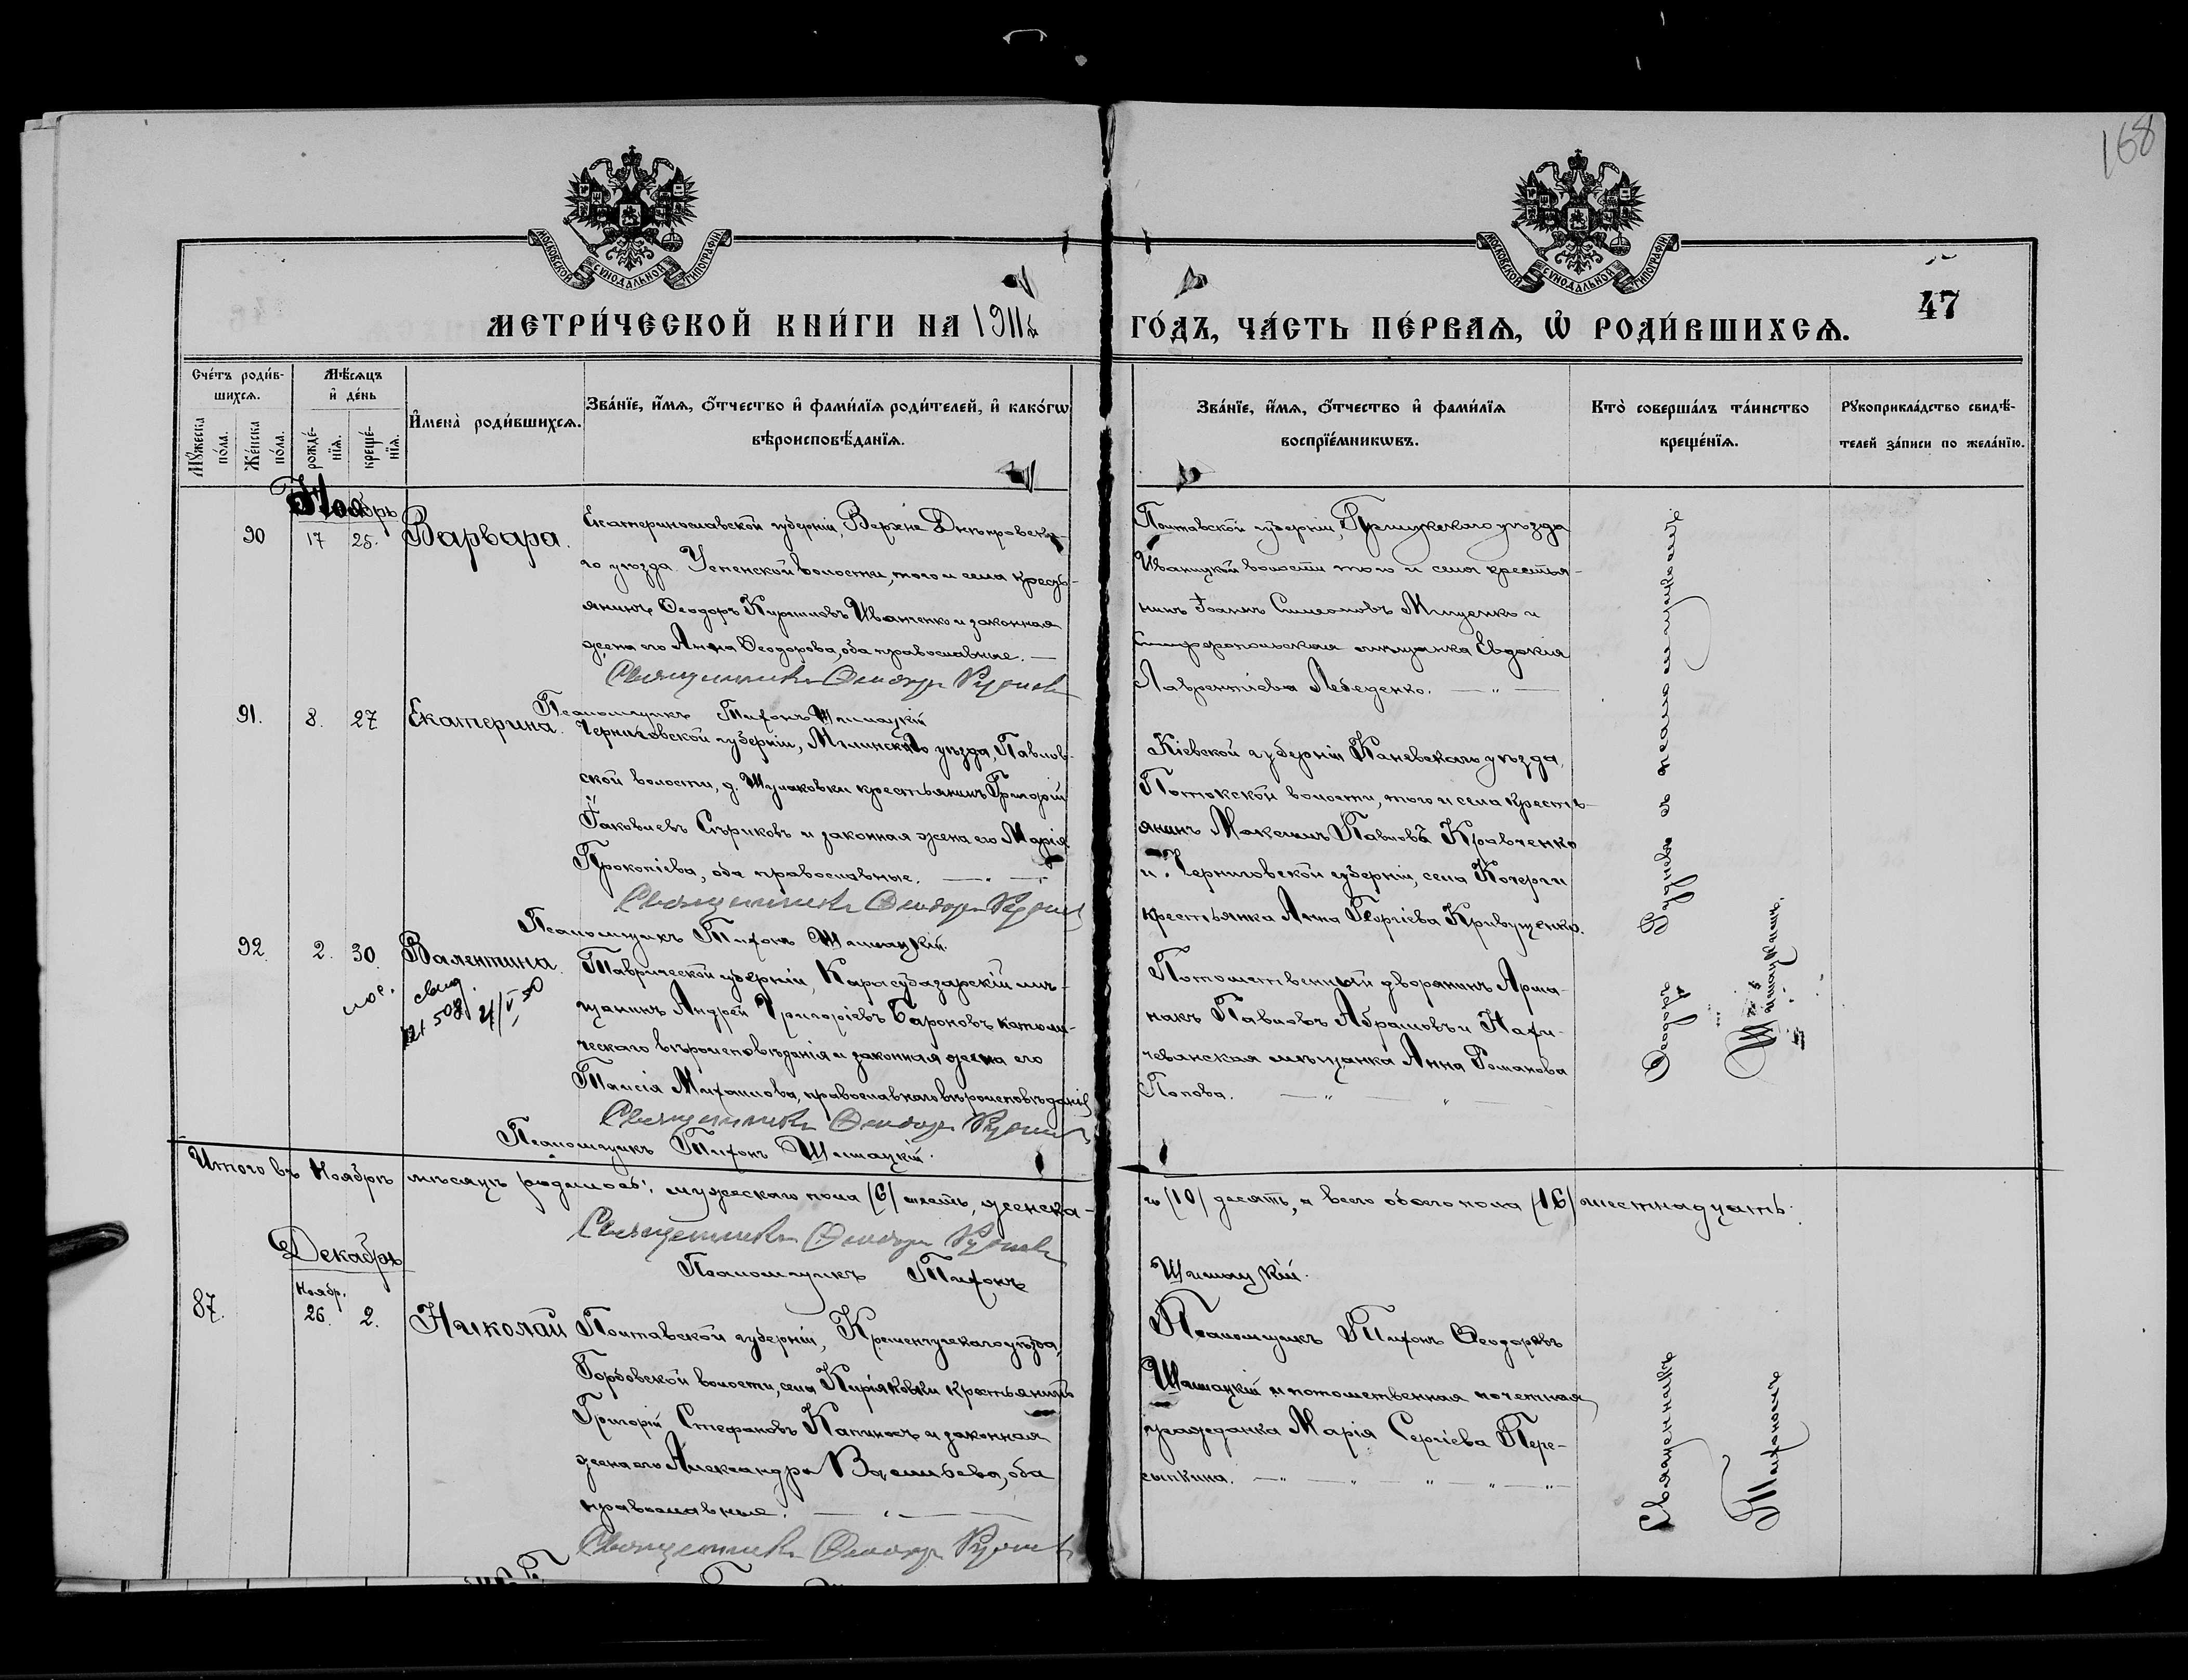 168
МОСКОВСКОЙ СУНОДАЛЬНОЙ ТИПОГРАФІИ
МОСКОВСКОЙ СУНОДАЛЬНОЙ ТИПОГРАФІИ
47
МЕТРИ́ЧЕСКОЙ КНИ́ГИ НА 1911й
ГО́ДЪ, ЧА́СТЬ ПЕ́РВАѦ, Ѡ҆ РОДИ́ВШИХСѦ.
Сче́тъ роди́в-
шихсѧ.
Мꙋ́жеска по́ла.
Же́нска по́ла.
Мѣ́сѧцъ и҆ де́нь
рожде́-нїѧ.
креще́-нїѧ.
И҆мена̀ роди́вшихсѧ.
Зва́нїе, и҆́мѧ, ѻ҆́тчество и҆ фами́лїѧ роди́телей, и҆ како́гѡ
вѣроисповѣ́данїѧ.
Зва́нїе, и҆́мѧ, ѻ҆́тчество и҆ фами́лїѧ
воспрїе́мникѡвъ.
Кто̀ соверша́лъ та́инство
креще́нїѧ.
Рꙋкоприкла́дство свидѣ́-
телей за́писи по жела́нїю.
Ноябрь
90 17 25. Варвара.
Екатеринославской губерніи, Верхне Днѣпровска-
го уѣзда Успенской волости, того и села кресть-
янинъ Ѳеодоръ Кирилловъ Иванченко и законная
жена его Анна Ѳеодорова, оба православные. —
Священникъ Ѳеодоръ
Псаломщикъ Тихонъ Шишацкій
Полтавской губерніи, Прилукскаго уѣзда
Иваницкой волости того и села крестья-
нинъ Іоаннъ Симеоновъ Мищенко и
Симферопольская мѣщанка Евдокія
Лаврентіева Лебеденко. — „ —
91. 8. 27 Екатерина.
Черниговской губерніи, Мглинскаго уѣзда, Павлов-
ской волости, д. крестьянинъ Григорій
Іаковлевъ Сѣриковъ и законная жена его Марія
Прокопіева, оба православные. — „ —
Священникъ Ѳеодоръ
Псаломщикъ Тихонъ Шишацкій.
Кіевской губерніи Каневскаго уѣзда,
Потокской волости, того и села кресть-
янинъ Максимъ Павловъ Кравченко
и Черниговской губерніи, села Кочерги
крестьянка Анна Георгіева Кривущенко.
92. 2. 30. Валентина.
21/V 50
Таврической губерніи, Карасубазарскій мѣ-
щанинъ Андрей Григоріевъ Бароновъ католи-
ческаго вѣроисповѣданія и законная жена его
Таисія Михаилова, православнаго вѣроисповѣданія
Священникъ Ѳеодоръ
Псаломщикъ Тихонъ Шишацкій.
Потомственный дворянинъ Арша-
накъ Павловъ Абрамовъ и Нахи-
чеванская мѣщанка Анна Романова
Попова. — „ — „ —
Ѳеодоръ съ псаломщикомъ
Шишацкимъ.
Итого въ Ноябрѣ мѣсяцѣ родилось: мужескаго пола (6) шесть, женска-
го (10) десять, а всего обоего пола (16) шестнадцать.
Священникъ Ѳеодоръ
Псаломщикъ Тихонъ
Шишацкій.
Декабрь
Ноябр.
87. 26. 2. Николай
Полтавской губерніи, Кременчугскаго уѣзда,
волости, села Киріяковки крестьянинъ
Григорій Стефановъ Капиносъ и законная
жена его Александра Васильева, оба
православные. — „ —
Священникъ Ѳеодоръ
Псаломщикъ Тихонъ Ѳеодоровъ
Шишацкій и потомственная почетная
гражданка Марія Сергіева Пере-
сыпкина. — „ — „ — „ — „ — „
Священникъ
Тихономъ